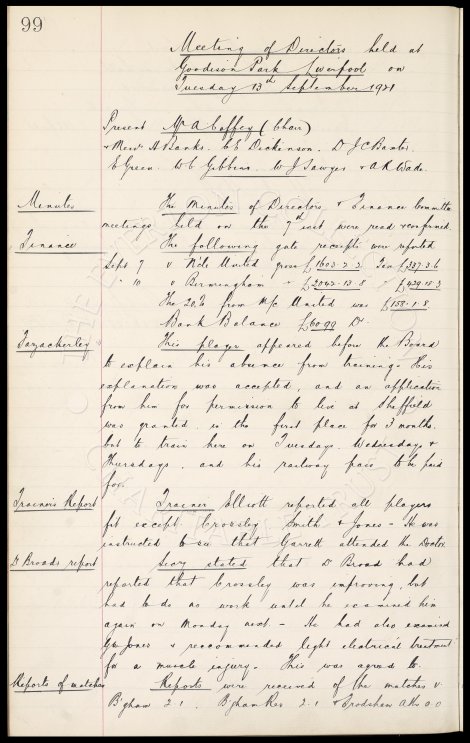 99
Meeting of Directors held at
Goodison Park Liverpool on
Tuesday 13th September 1921
Present Mr A Coffey (Chair)
& Messrs H Banks. C E Dickinson. Dr J C Baxter.
E Green. W C Gibbins. W J Sawyer & A R Wade.
Minutes The Minutes of Directors & Finance Committee
meetings held on the 7th inst were read & confirmed.
Finance The following gate receipts were reported
Sept 7 v N'cle United gross £1603.2.2. Tax £387.3.6
" 10 v Birmingham " £2042.13.8 " £429.18.3
The 20% from M/c United was £158.1.8.
Bank Balance £6099 Dr.
Fazackerley This player appeared before the Board
to explain his absence from training. His
explanation was accepted, and an application
from him for permission to live at Sheffield
was granted in the first place for 3 months.
but to train here on Tuesdays. Wednesdays &
Thursdays. and his railway fares to be paid
for.
Trainer's Report Trainer Elliott reported all players
fit except Crossley Smith & Jones - He was
instructed to see that Garrett attended the Doctor.
Dr Broads report Secy stated that Dr Broad had
reported that Crossley was improving, but
had to do no work until he examined him
again on Monday next. - He had also examined
Geo Jones & recommended light electrical treatment
for a muscle injury. This was agreed to.
Reports of matches Reports were received of the matches v.
B'gham 2.1. B'gham Res 2.1 & Frodsham Ath 0.0